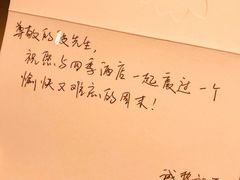 尊敬的 先生，
祝您与四季酒店一起度过一个
愉快又难忘的周末！
诚挚